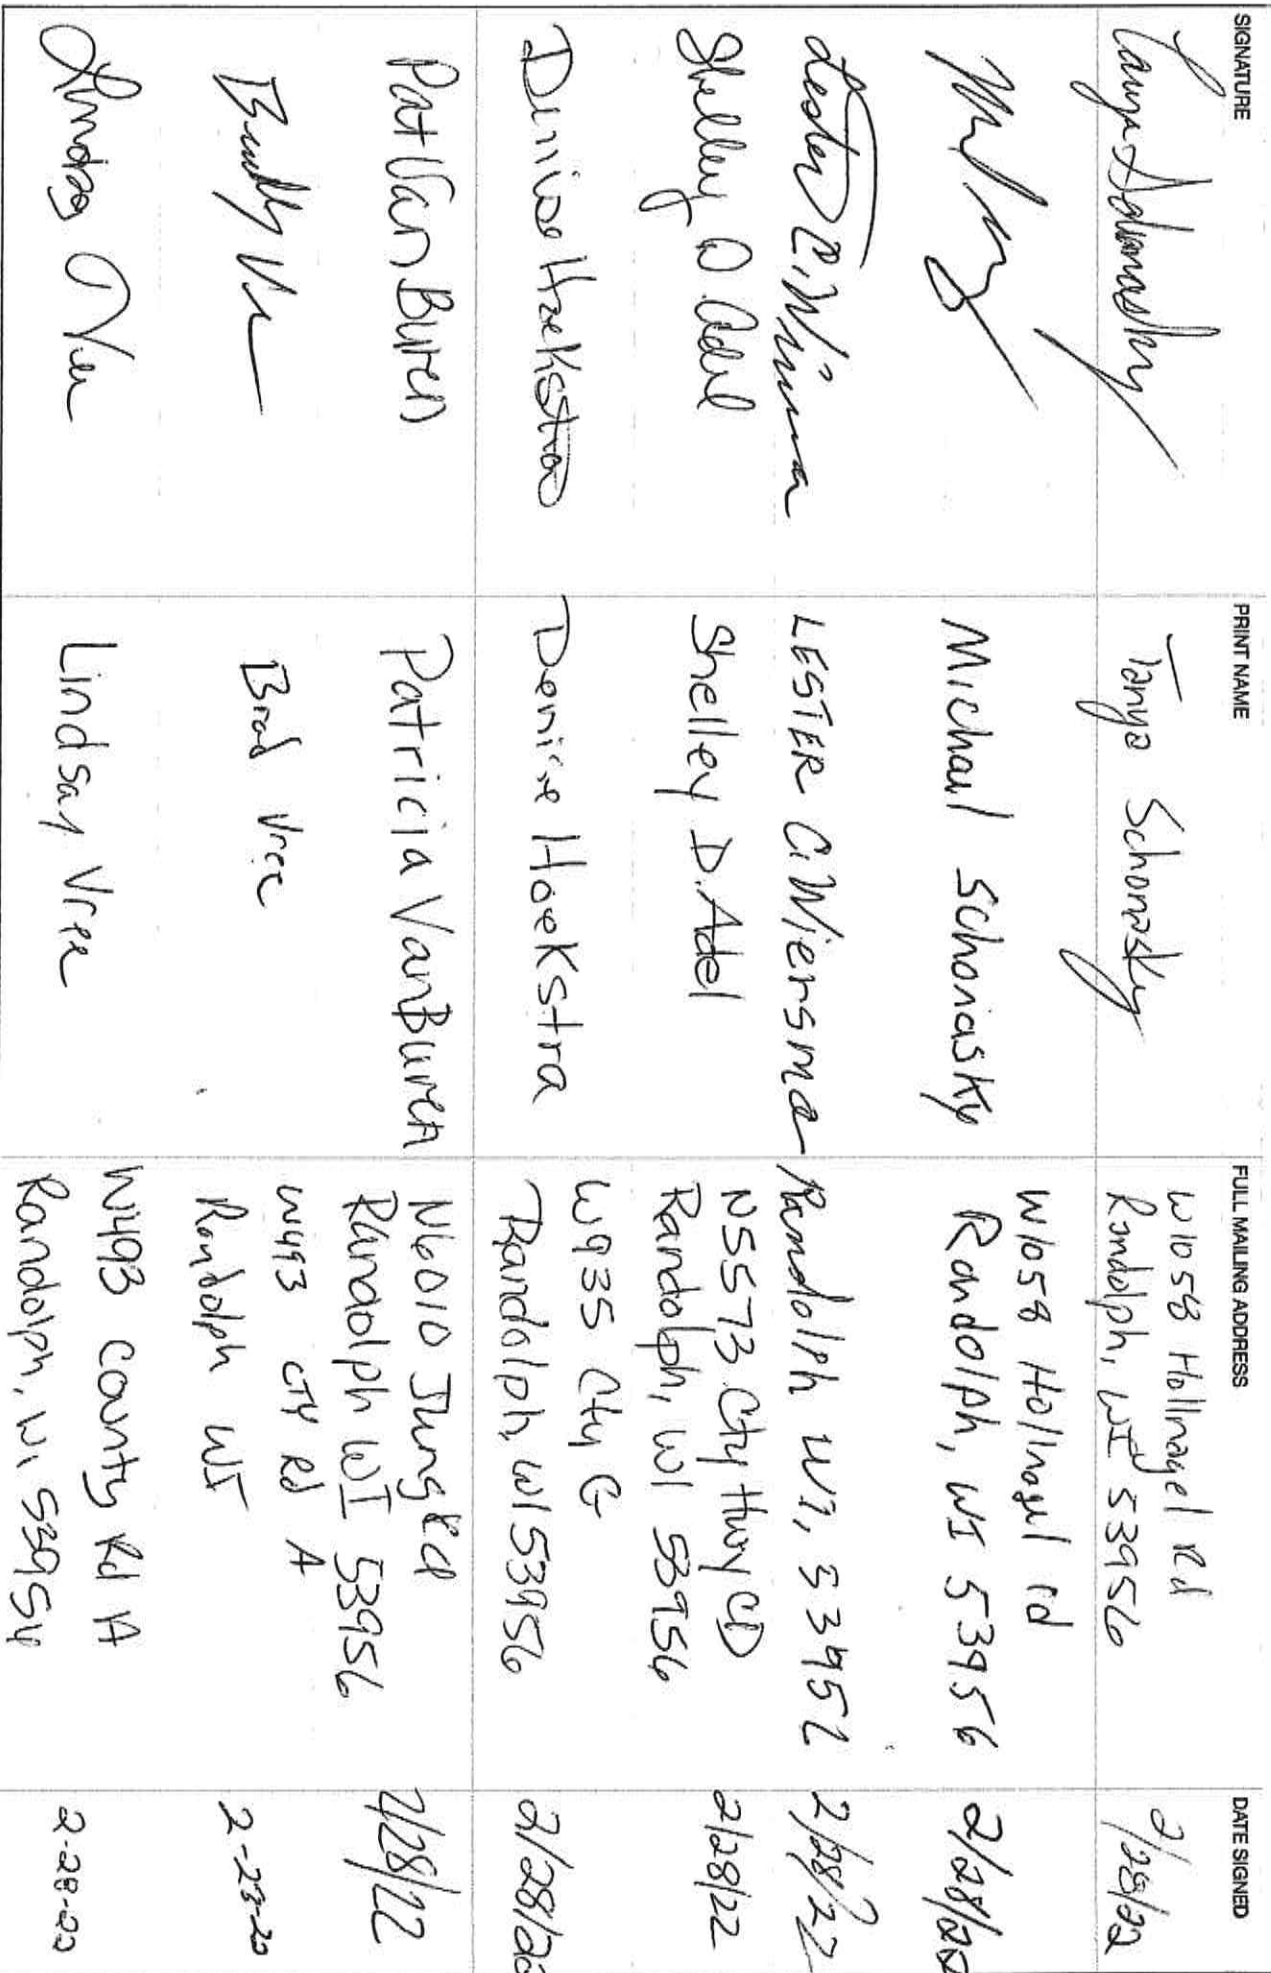 SIGNATURE PRINT NAME FULL MAILING ADDRESS DATE SIGNED
Tanya Schonasky W1058 Hollnagel Rd
Randolph, WI 53956 2/28/22
Michael Schonasky W1058 Hollnagel rd
Randolph, WI 53956 2/28/22
Lester C. Wiersma LESTER C. Wiersma Randolph WI, 53956 2/28/22
Shelley D Adel Shelley D. Adel N5573 Cty Hwy CD
Randolph, WI 53956 2/28/22
Denise Hoekstra Denise Hoekstra W935 Cty G
Randolph, WI 53956 2/28/22
Pat Van Buren Patricia VanBuren N6010 Jung Rd
Randolph WI 53956 2/28/22
Brad Vree W493 CTY Rd A
Randolph WI
Lindsay Vree Lindsay Vree W493 County Rd A
Randolph, WI 53956 2-28-22